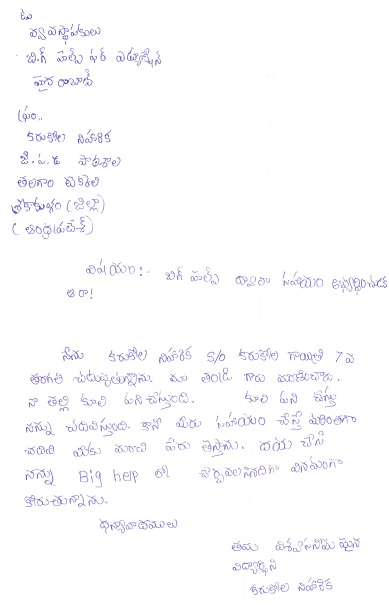 టు
వ్యవస్థాపకులు
బిగ్ హెల్ప్ ఫర్ ఎడ్యుకేషన్
హైదరాబాద్
ఫ్రం..
కరుకోల నిహారిక
జి.ప.ఉ పాఠశాల
తలగాం టెక్కలి
శ్రీకాకుళం (జిల్లా)
(ఆంధ్రప్రదేశ్)
విషయం:- బిగ్ హెల్ప్ ద్వారా సహాయం అభ్యర్థించుట
ఆర్యా!
నేను కరుకోల నిహారిక S/o కరుకోల గాయత్రి 7వ
తరగతి చదువుతున్నాను. మా తండ్రి గారు మరణించారు.
నా తల్లి కూలి పని చేస్తుంది. కూలి పని చేస్తు
నన్ను చదివిస్తుంది. కానీ మీరు సహాయం చేస్తే మరింతగా
చదివి మీకు మంచి పేరు తెస్తాను. దయ చేసి
నన్ను Big help లో చేర్చవలసిందిగా వినయంగా
కోరుతున్నాను.
ధన్యవాదములు
తమ విశ్వసనీయమైన
విద్యార్థిని
కరుకోల నిహారిక